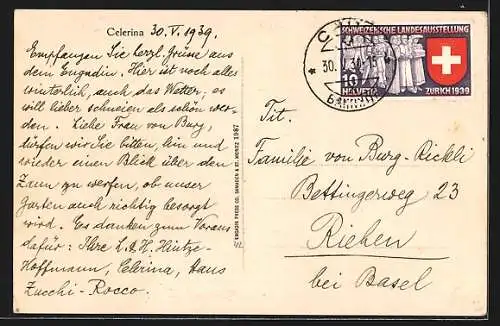 Celerina 30. V. 1939.
Empfangen Sie herzl. Grüsse aus
dem Engadin. Hier ist noch alles
winterlich, auch das Wetter, es
will lieber schneien als schön wer-
den. Liebe Frau von Burg,
dürfen wir Sie bitten, hin und
wieder einen Blick über den
Zaun zu werfen, ob unser
Garten auch richtig besorgt
wird. Es danken zum Voraus
dafür: Ihre L. & H. Hintze-
Hoffmann, Celerina, Haus
Zucchi-Rocco.
SCHWEIZERISCHE LANDESAUSSTELLUNG
10
HELVETIA
ZÜRICH 1939
30.
Tit.
Familie von Burg-Rickli
Bettingerweg 23
Riehen
bei Basel